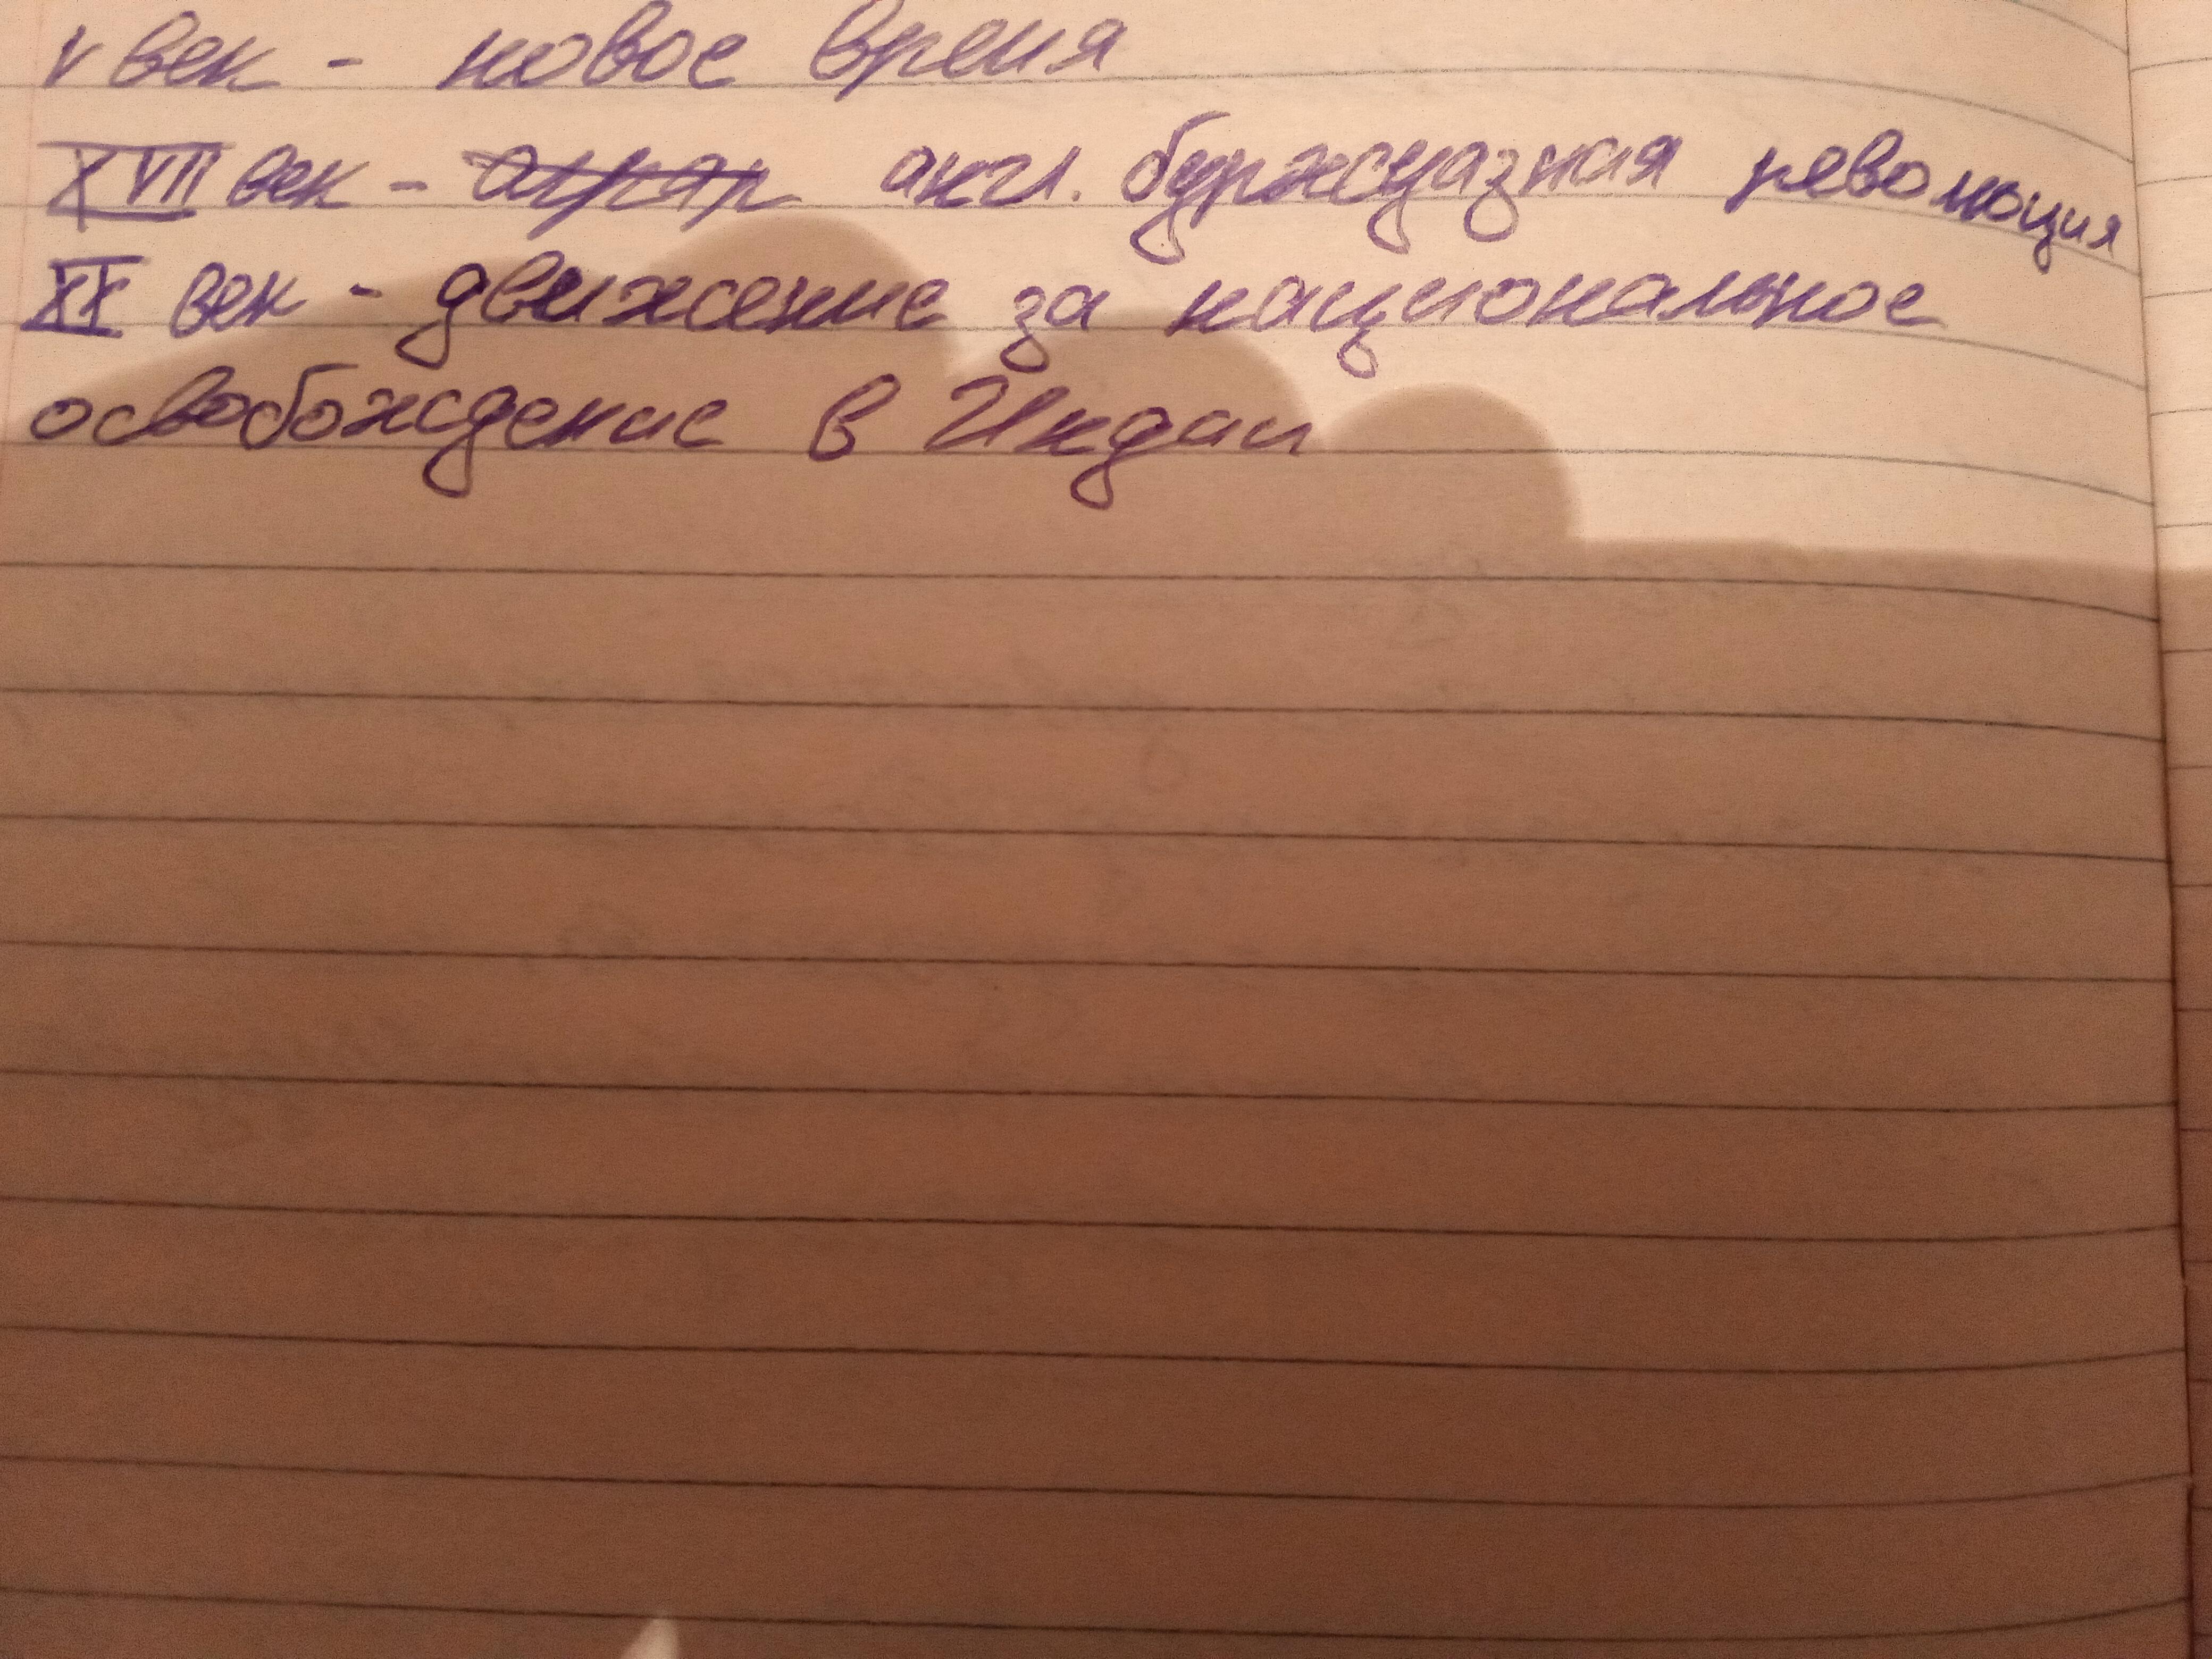 V век - новое время
XVII век - аграр англ. буржуазная революция
XX век - движение за национальное
освобождение в Индии